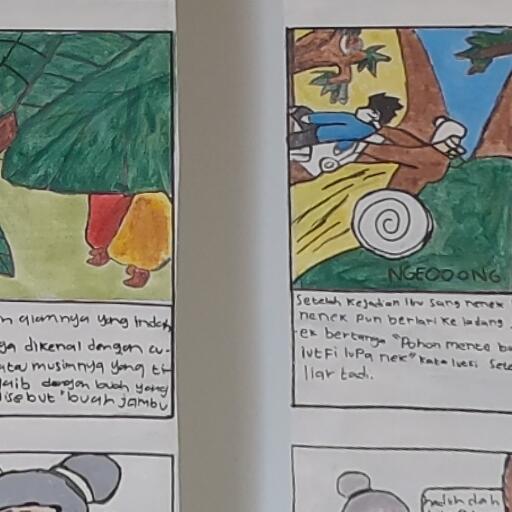 n alamnya yang indah
ya dikenal dengan cu-
atau musimnya yang ti
aib dengan buah yang
disebut "buah jambu
NGEOOONG
Setelah kejadian itu sang nenek
nenek pun berlari ke ladang
ek bertanya "Pohon mente bu
lutfi lupa nek" kata lutfi Sete
liar tadi.
aduh dah